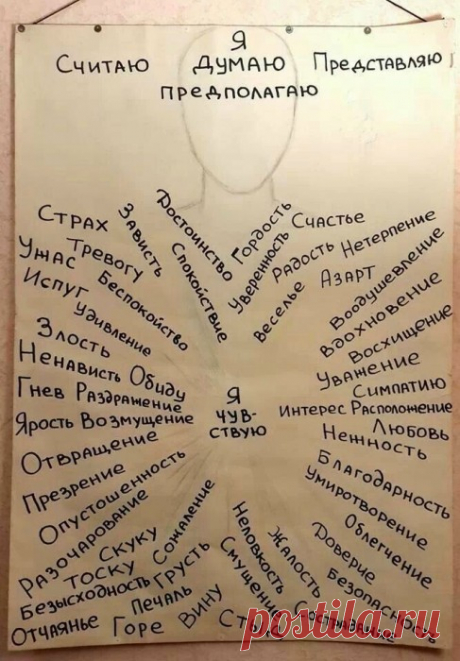 Я
Считаю Думаю Представляю
предполагаю
Страх
Ужас
Тревогу
Испуг
Беспокойство
Удивление
Зависть
Спокойствие
Достоинство
Гордость
Уверенность
Счастье
Радость
Веселье
Нетерпение
Азарт
Воодушевление
Вдохновение
Восхищение
Уважение
Симпатию
Интерес Расположение
Любовь
Нежность
Злость
Ненависть Обиду
Гнев Раздражение
Ярость Возмущение
Отвращение
Презрение
Опустошенность
Разочарование
Я
чув-
ствую
Благодарность
Умиротворение
Облегчение
Доверие
Безопасность
Жалость
Неловкость
Смущение
Сожаление
Скуку
Тоску
Безысходность Грусть
Отчаянье
Печаль
Горе
Вину
Сострадание
postila.ru